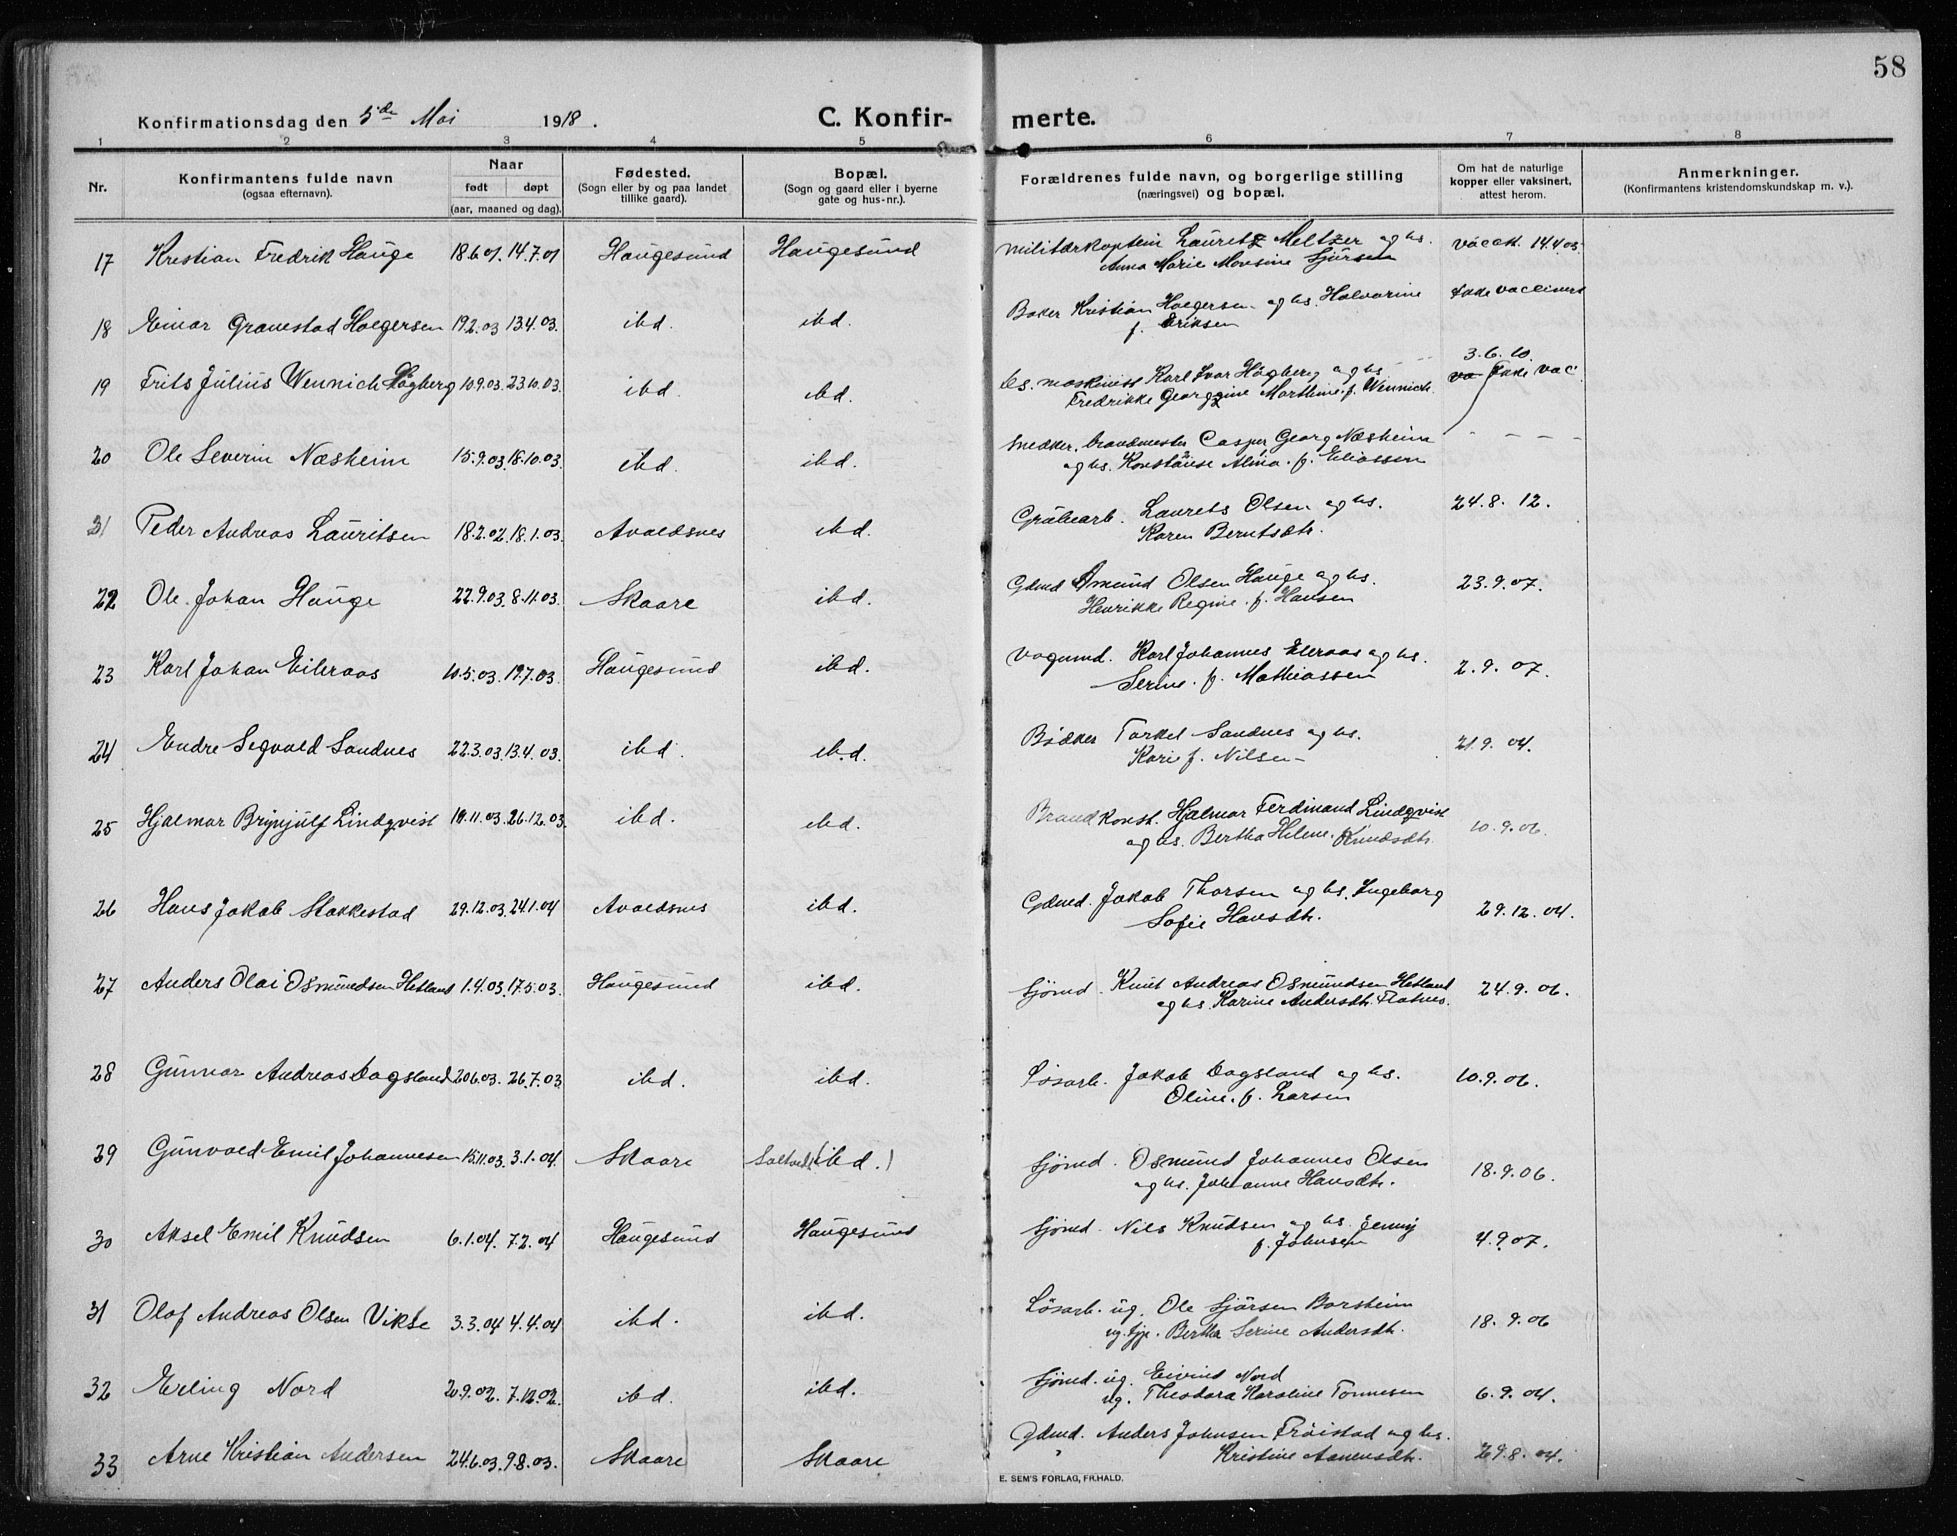 58
Konfirmationsdag den 5de Mai 1918.
C. Konfir-
merte.
1 2 3 4 5 6 7 8
Nr.
Konfirmantens fulde navn
(ogsaa efternavn).
Naar
født døpt
(aar, maaned og dag).
Fødested.
(Sogn eller by og paa landet
tillike gaard).
Bopæl.
(Sogn og gaard eller i byerne
gate og hus-nr.).
Forældrenes fulde navn, og borgerlige stilling
(næringsvei) og bopæl.
Om hat de naturlige
kopper eller vaksinert,
attest herom.
Anmerkninger.
(Konfirmantens kristendomskundskap m. v.).
17 Kristian Fredrik Hauge 18.6.01. 14.7.01 Haugesund Haugesund Militærkaptein Lauretz Meltzer og hs. vacc. 14.4.03
Anna Marie Monsine Sjursen
18 Einar Gravestad Holgersen 19.2.03 13.4.03. ibd. ibd. Baker Kristian Holgersen og hs. Halvorine Ikke vaccinert
f. Eriksen
3.6.10.
19 Frits Julius Wennich Högberg 10.9.03. 23.10.03. ibd. ibd. ds. maskinist Karl Ivar Högberg og hs. va Ikke vac
Fredrikke Georgine Marthine f. Wennich.
20 Ole Severin Næsheim 15.9.03. 18.10.03. ibd. ibd. Snekker, brandmester Casper Georg Næsheim - - - -
og hs. Konstanse Alma f. Eliassen
21 Peder Andreas Lauritsen 18.2.02. 18.1.03. Avaldsnes ibd. Grubearb. Laurets Olsen og hs. 24.8.12.
Karen Berntsdtr.
22 Ole Johan Hauge 22.9.03. 8.11.03. Skaare ibd. Gdmd Omund Olsen Hauge og hs. 23.9.07.
Henrikke Regine f. Hansen
23 Karl Johan Eileraas 10.5.03. 19.7.03. Haugesund ibd. Vognmd. Karl Johannes Eleraas og hs. 2.9.07.
Serine f. Mathiassen
24 Endre Sigvald Sandnes 22.3.03. 13.4.03. ibd. ibd. Bödker Torkel Sandnes og hs. 21.9.04.
Kari f. Nilsen
25 Hjalmar Brynjulf Lindqvist 19.11.03. 26.12.03. ibd. ibd. Brandkonst. Hjalmar Ferdinand Lindqvist 10.9.06.
og hs. Bertha Helene f. Knudsdtr.
26 Hans Jakob Stakkestad 29.12.03. 24.1.04 Avaldsnes ibd. Gdmd. Jakob Thorsen og hs. Ingeborg 29.12.04.
Sofie Hansdtr.
27 Anders Olai Osmundsen Hetland 1.4.03. 17.5.03. Haugesund ibd. Sjömd. Knut Andreas Osmundsen Hetland 24.9.06.
og hs. Karine Andersdtr. Flatnes.
28 Gunnar Andreas Dagsland 20.6.03. 26.7.03 ibd. ibd. Lösarb. Jakob Dagsland og hs. 10.9.06.
Oline f. Larsen
29 Gunvald Emil Johannesen 15.11.03. 3.1.04. Skaare (ibd.) Sjömd. Osmund Johannes Olsen 18.9.06.
og hs. Johanne Hansdtr.
30 Aksel Emil Knudsen 6.1.04. 7.2.04 Haugesund Haugesund Sjömd. Nils Knudsen og hs. Jenny 4.9.07.
f. Johnsen
31 Olaf Andreas Olsen Vikse 3.3.04 4.4.04 ibd. ibd. Lösarb. ug. Ole Sjörsen Borsheim 18.9.06
ug. tjp. Bertha Serine Andersdtr.
32 Erling Nord 20.9.02. 7.12.02. ibd. ibd. Sjömd. ug. Eivind Nord
ug. Theodora Karoline Tönnesen 6.9.04.
33 Arne Kristian Andersen 24.6.03. 9.8.03. Skaare Skaare Gdmd. Anders Johnsen Fröistad og hs. 29.8.04.
Kristine Aanensdtr.
E. SEM'S FORLAG, FR.HALD.